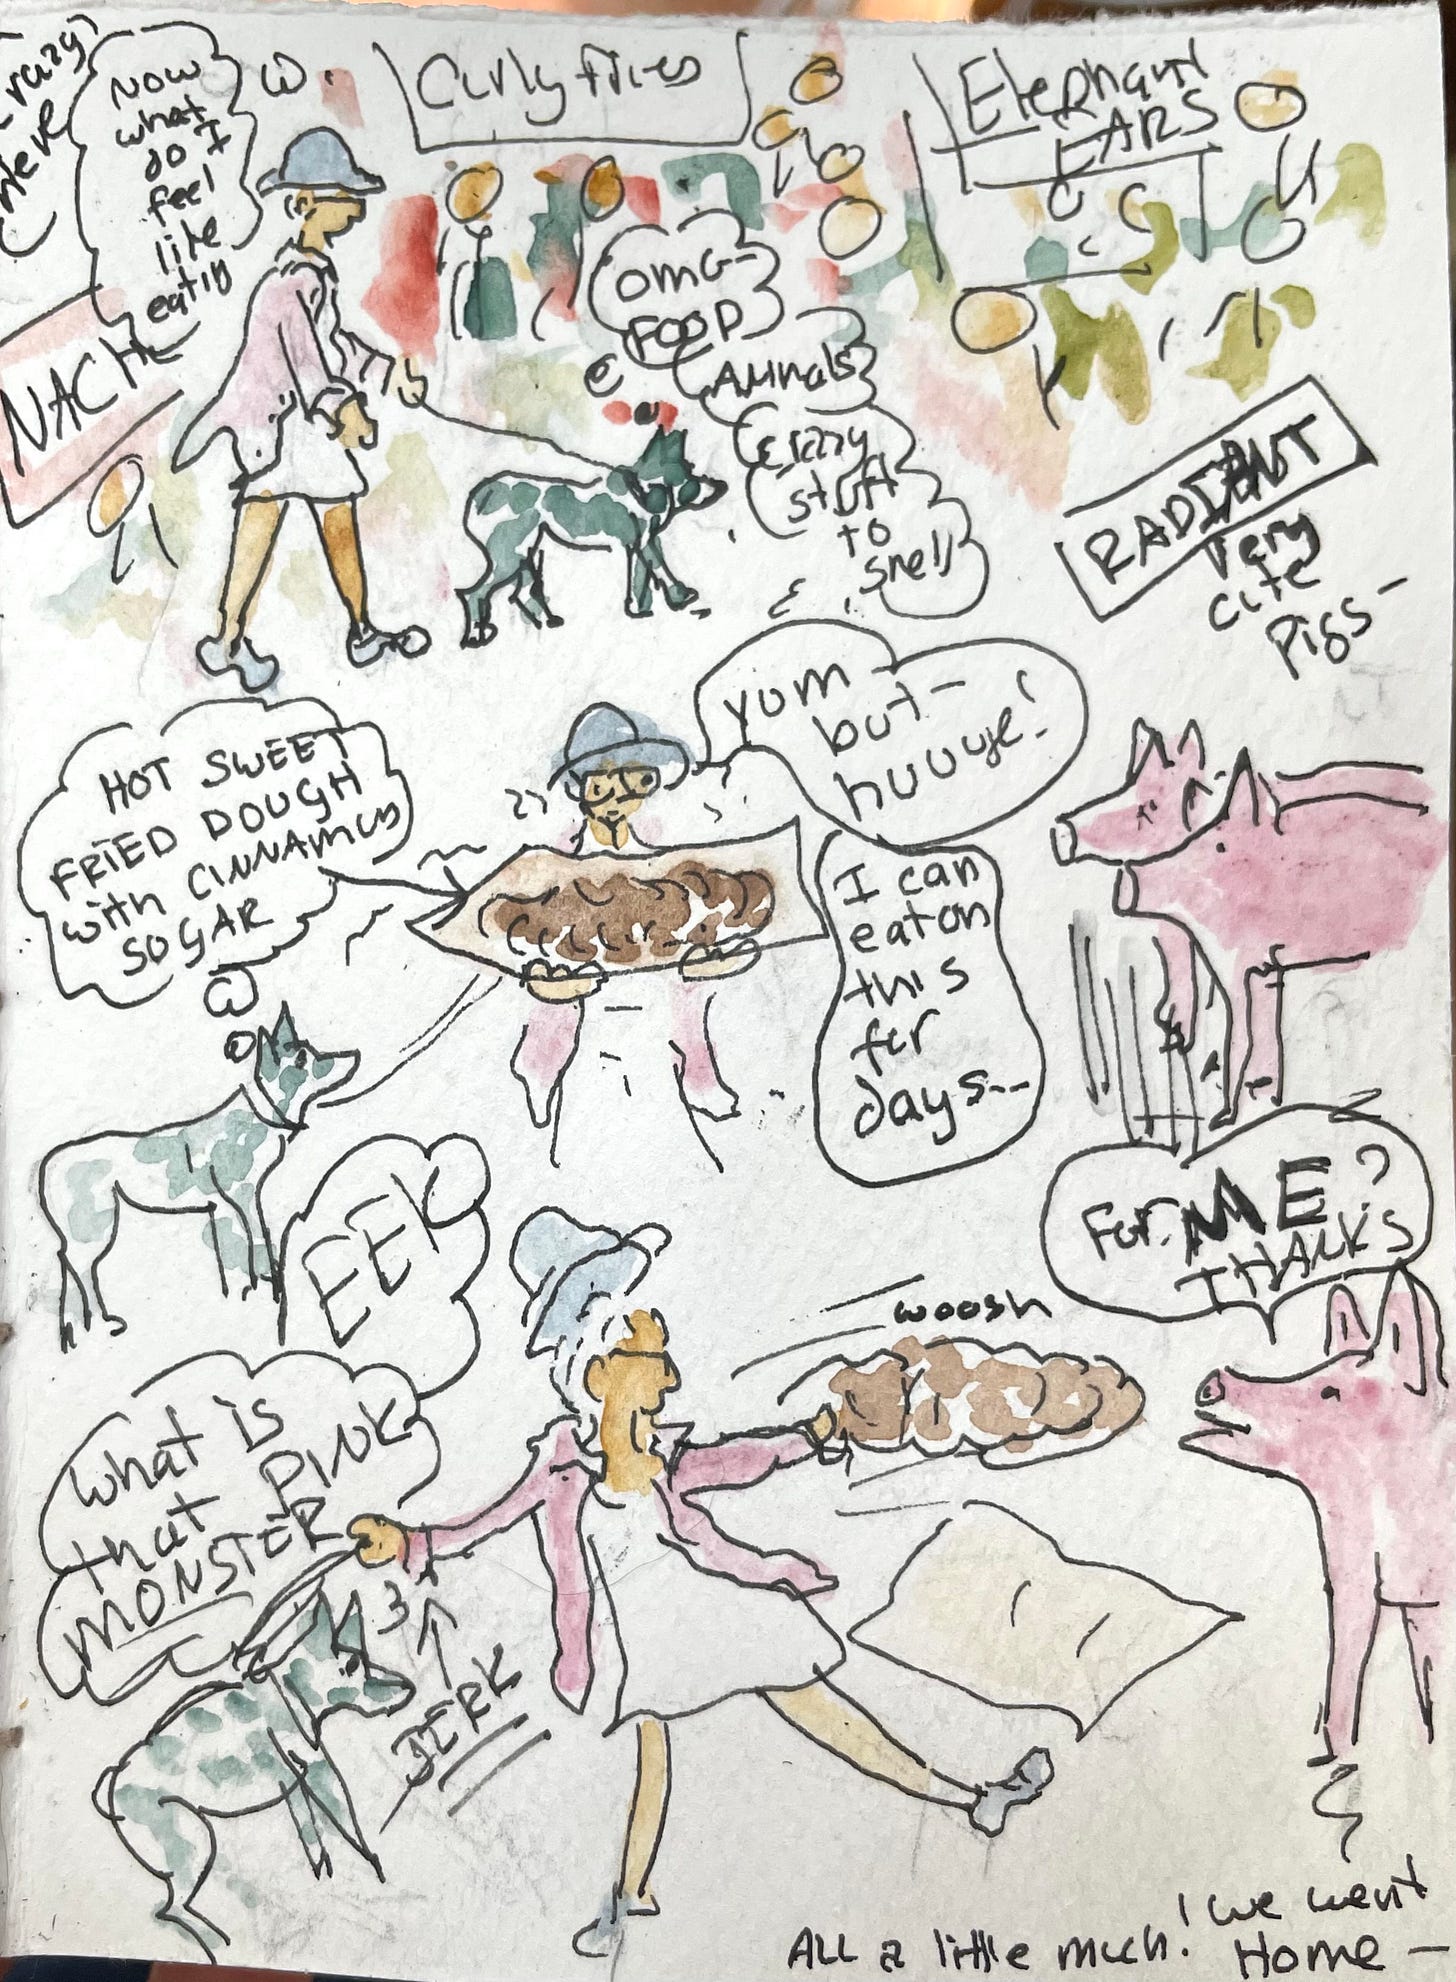 Crazy
Here
NOW
what
do I
feel
like
eating
W.
Curly Fries
Elephant
EARS
NACH
OMG-
FOOD
Animals
crazy
stuff
to
smell
RADIANT
Very
cute
Pigs-
HOT SWEET
FRIED DOUGH
with CINNAMON
SUGAR
yum -
but -
huuuge!
I can
eat on
this
for
days--
EEK
For ME?
THANKS
woosh
What is
that PINK
MONSTER
JERK
ALL a little much! we went
Home -